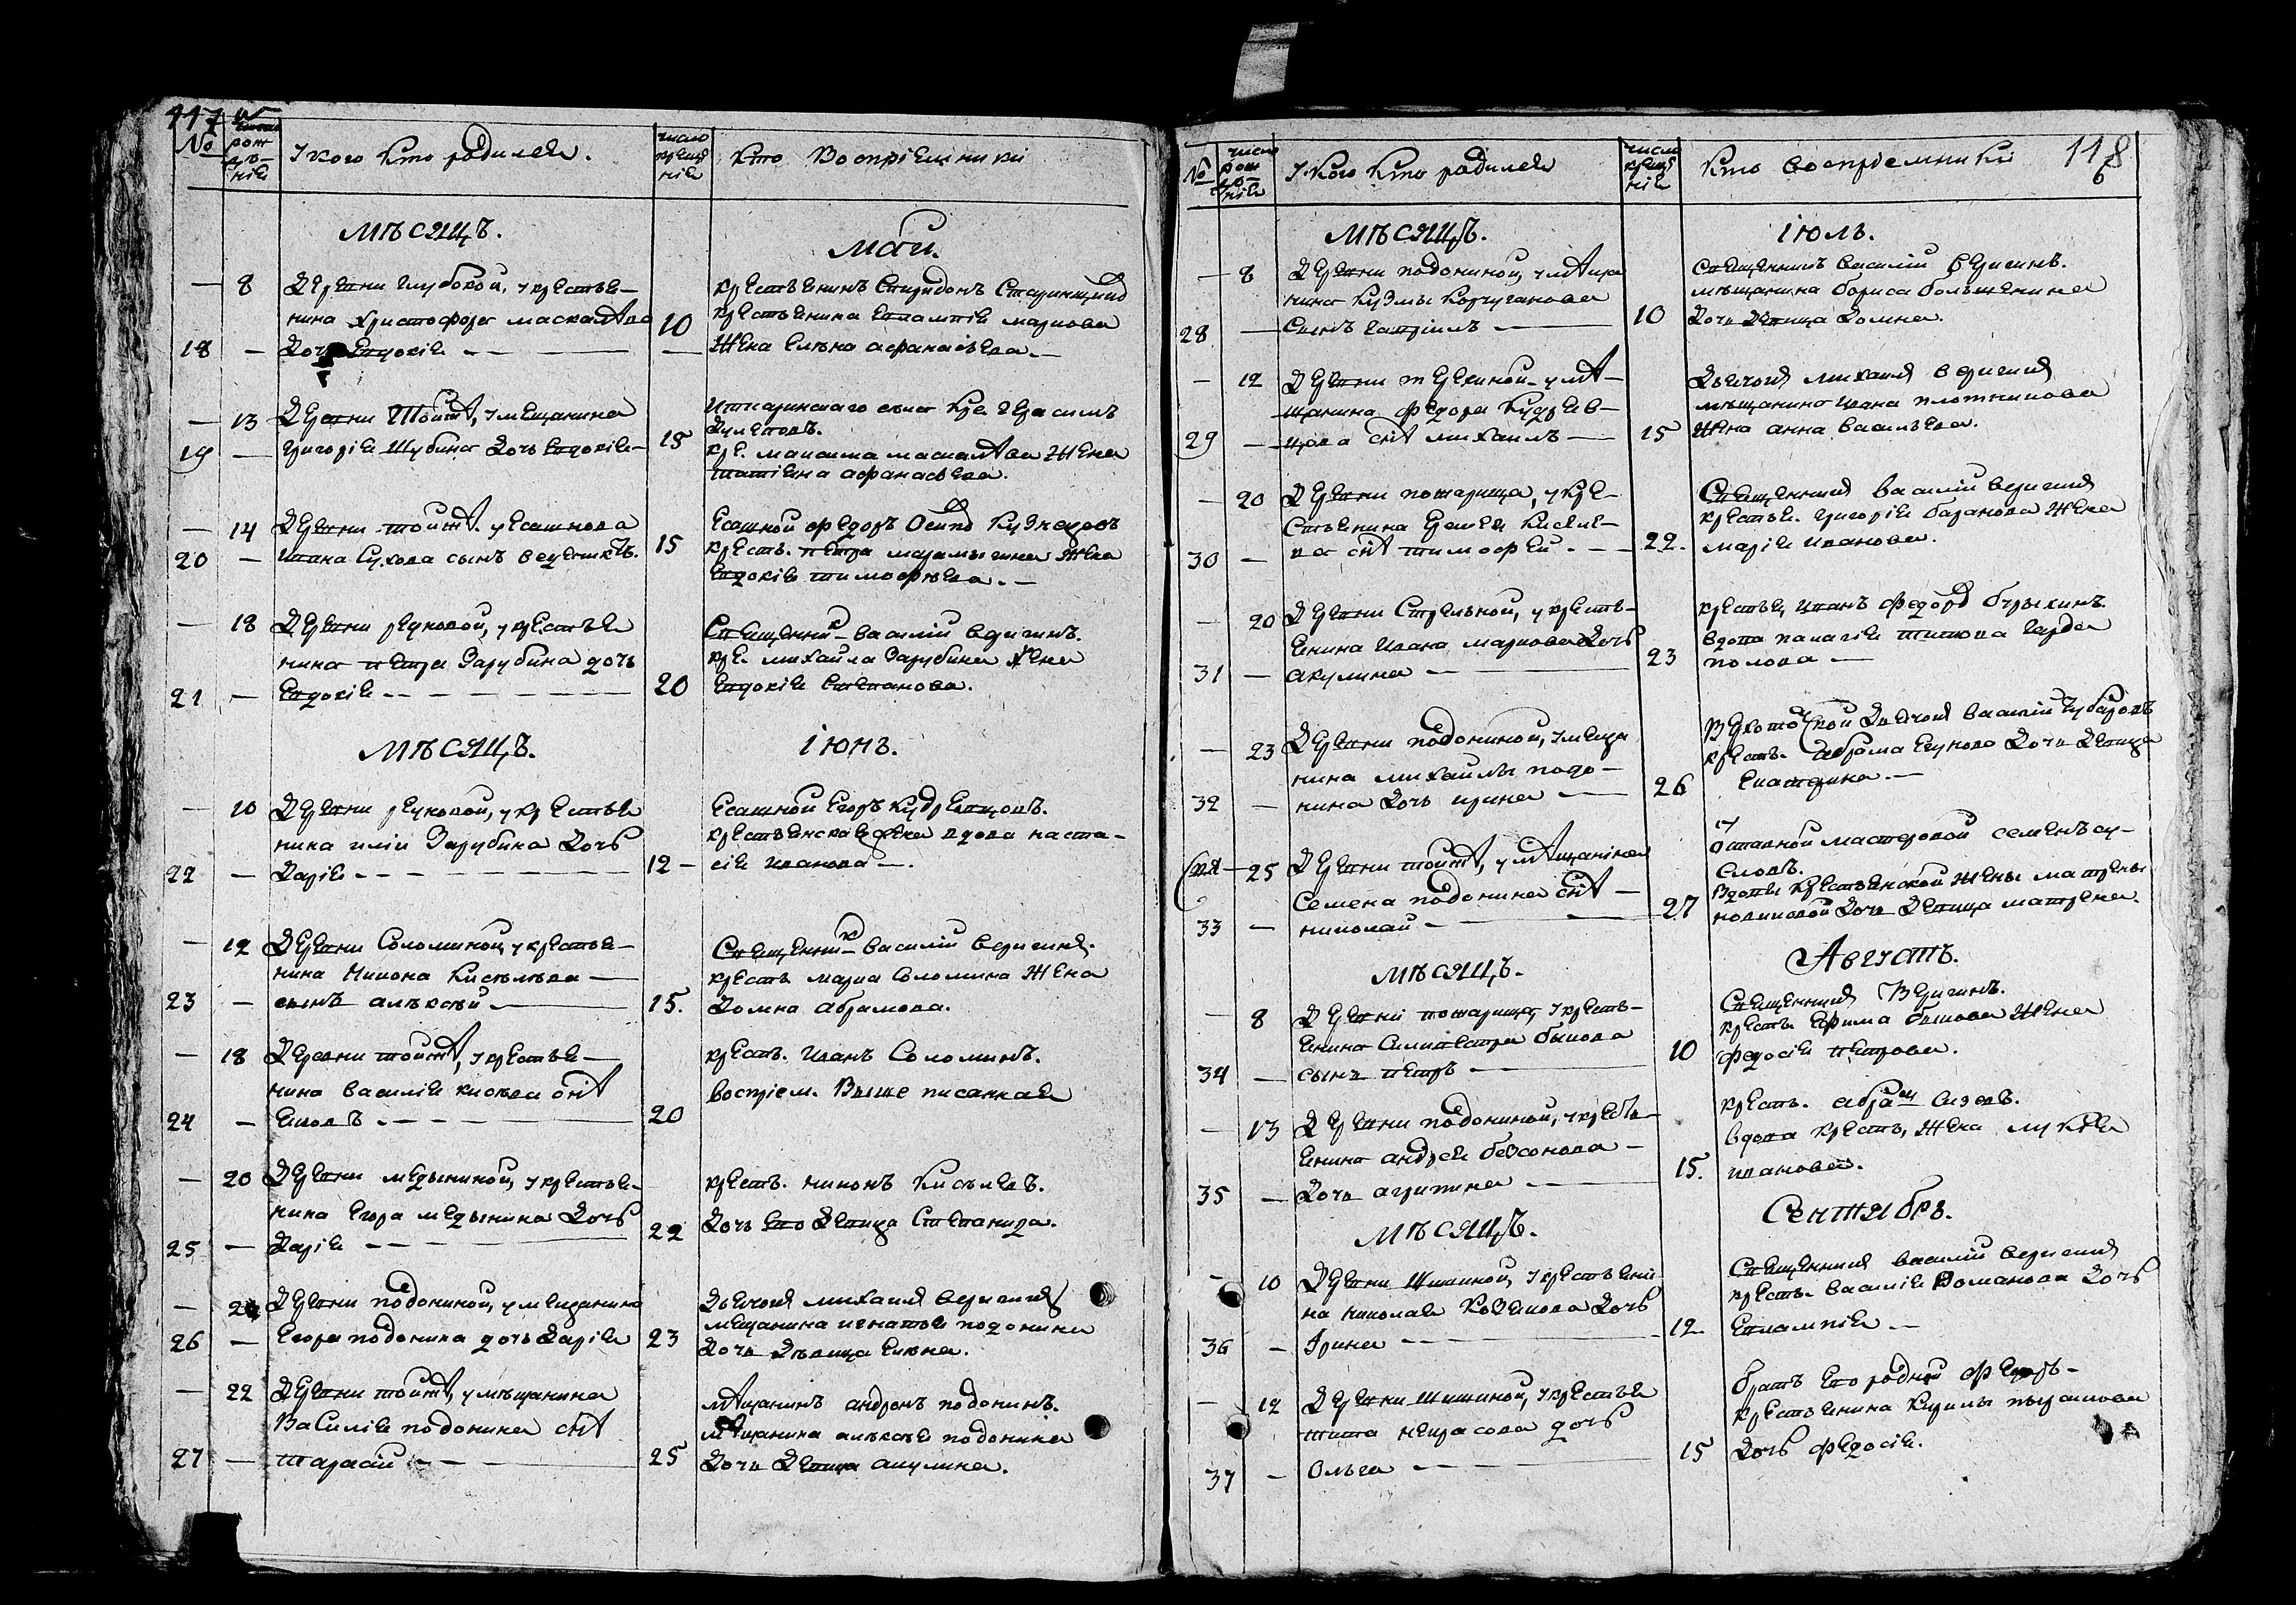 117
№
число рож дѣ- нія
У кого кто родился.
число креще нія
Кто Воспріемники
МѢСЯЦЪ.
Май.
8
Деревни глубокой, у крестья-
нина Христофора маскалѣва
18 — Дочь Евдокія
10
крестьянинъ Спиридонъ
крестьянина Евлампія маркова
Жена Елѣна афанасьева.
13
Деревни тойтѣ, у мещанина
19 — Григорія Шубина Дочь Евдокія
15
села кре. Герасимъ
кре. максима маскалѣва Жена
татіяна афанасьева.
14
Деревни тойтѣ. у Есашнова
20 — Ивана Сухова сынъ веденихтъ.
15
Есашной федоръ Осипо Кузнецовъ
кресть. петра марамыгина Жена
Евдокія тимофѣева.
18
Деревни рецковой, у крестья
нина петра Зарубина дочь
21 — Евдокія
20
Священникъ василій веригинъ.
кре. михайла Зарубина Жена
Евдокія Степанова.
МѢСЯЦЪ.
Іюнь.
10
Деревни рецковой, у крестья
нина иліи Зарубина Дочь
22 — Дарія
12
Есашной Егоръ Кудревцовъ.
крестьянская Жена вдова наста-
сія иванова.
12
Деревни Соломиной, у крестья-
нина Никона Кисѣлѣва
23 — сынъ алѣксѣй
15.
Священникъ василій веригинъ.
кресть марка Соломина Жена
Домна абрамова.
18
Деревни тойтѣ, у крестья-
нина василія
24 —
20
кресть. иванъ Соломинъ.
воспріем. Выше писанная
20
Деревни медыниной, у крестья-
нина Егора медынина Дочь
25 — Дарія
22
кресть. никонъ Кисѣлевъ.
Дочь Его Девица Степанида.
Деревни подониной, у мещанина
26 — Егора подонина дочь Дарія
23
Дьячокъ михаилъ веригинъ
мещанина игнатья подонина
Дочь Дѣвица Елѣна.
22
Деревни тойтѣ, у мѣщанина
Василія подонина сынъ
27 — тарасій
25
мѣщанинъ андронъ подонинъ.
мѣщанина алѣксѣя подонина
Дочь Девица акулина.
118
№
число рож дѣ- нія
У кого кто родился
число креще нія
Кто воспріемники
МѢСЯЦЪ.
Іюль.
8
Деревни подониной, у мѣща
нина Кузмы Корчуганова
28 — Сынъ гавріилъ
10
Священникъ василій Веригинъ.
мѣщанина бориса большенина
Дочь Девица Домна.
12
Деревни терехиной у мѣ-
щанина федора Кудрев-
29 — цова сынъ михаилъ
15
Дьячокъ михаилъ веригинъ
мѣщанина ивана плотникова
Жена анна василъева.
20
Деревни пожарища, у кре-
стьянина Еремея Кисиле-
30 — ва сынъ тимофей
22.
Священникъ василій веригинъ
крестья. григорія баранова Жена
марія иванова.
20
Деревни Стрельной, у кресть-
янина ивана маркова Дочь
31 — акулина
23
крестья, иванъ федоро бурыхинъ.
вдова палагія титова Герде
полова
23
Деревни подониной, у меща
нина михайлы подо-
32 — нина Дочь ирина
26
Верхото кой Дьячокъ василій Губаровъ
кресть. абрама Егунова Дочь Девица
Екатерина.
25
Деревни тойтѣ, у мѣщанина
Семена подонина сынъ
33 — николай
27
Отставной мастеровой семенъ су-
словъ.
Вдовы Крестьянской Жены матрены
новиковой Дочь Девица матрена.
МѢСЯЦЪ.
Августъ.
8
Деревни пожарища, у кресть-
янина Силивестра быкова
34 — сынъ петръ
10
Священникъ Веригинъ.
кресть Ефима быкова Жена
федосія петрова.
13
Деревни подониной, у кресть-
янина андрея безсонова
35 — Дочь агрипина
15.
кресть. абрамъ Сизовъ.
вдова кресть, Жена лукѣя
иванова.
МѢСЯЦЪ.
Сентябрь.
10
Деревни Шишиной, у крестьяни-
на николая Козикова Дочь
36 — Ірина
12.
Священникъ василій веригинъ
кресть. василія Романова Дочь
Евлампія
12
Деревни Шишиной, у крестья
тита некрасова дочь
37 — Ольга
15
братъ Его родной
крестьянина Кирилы пырсикова
Дочь федосія.